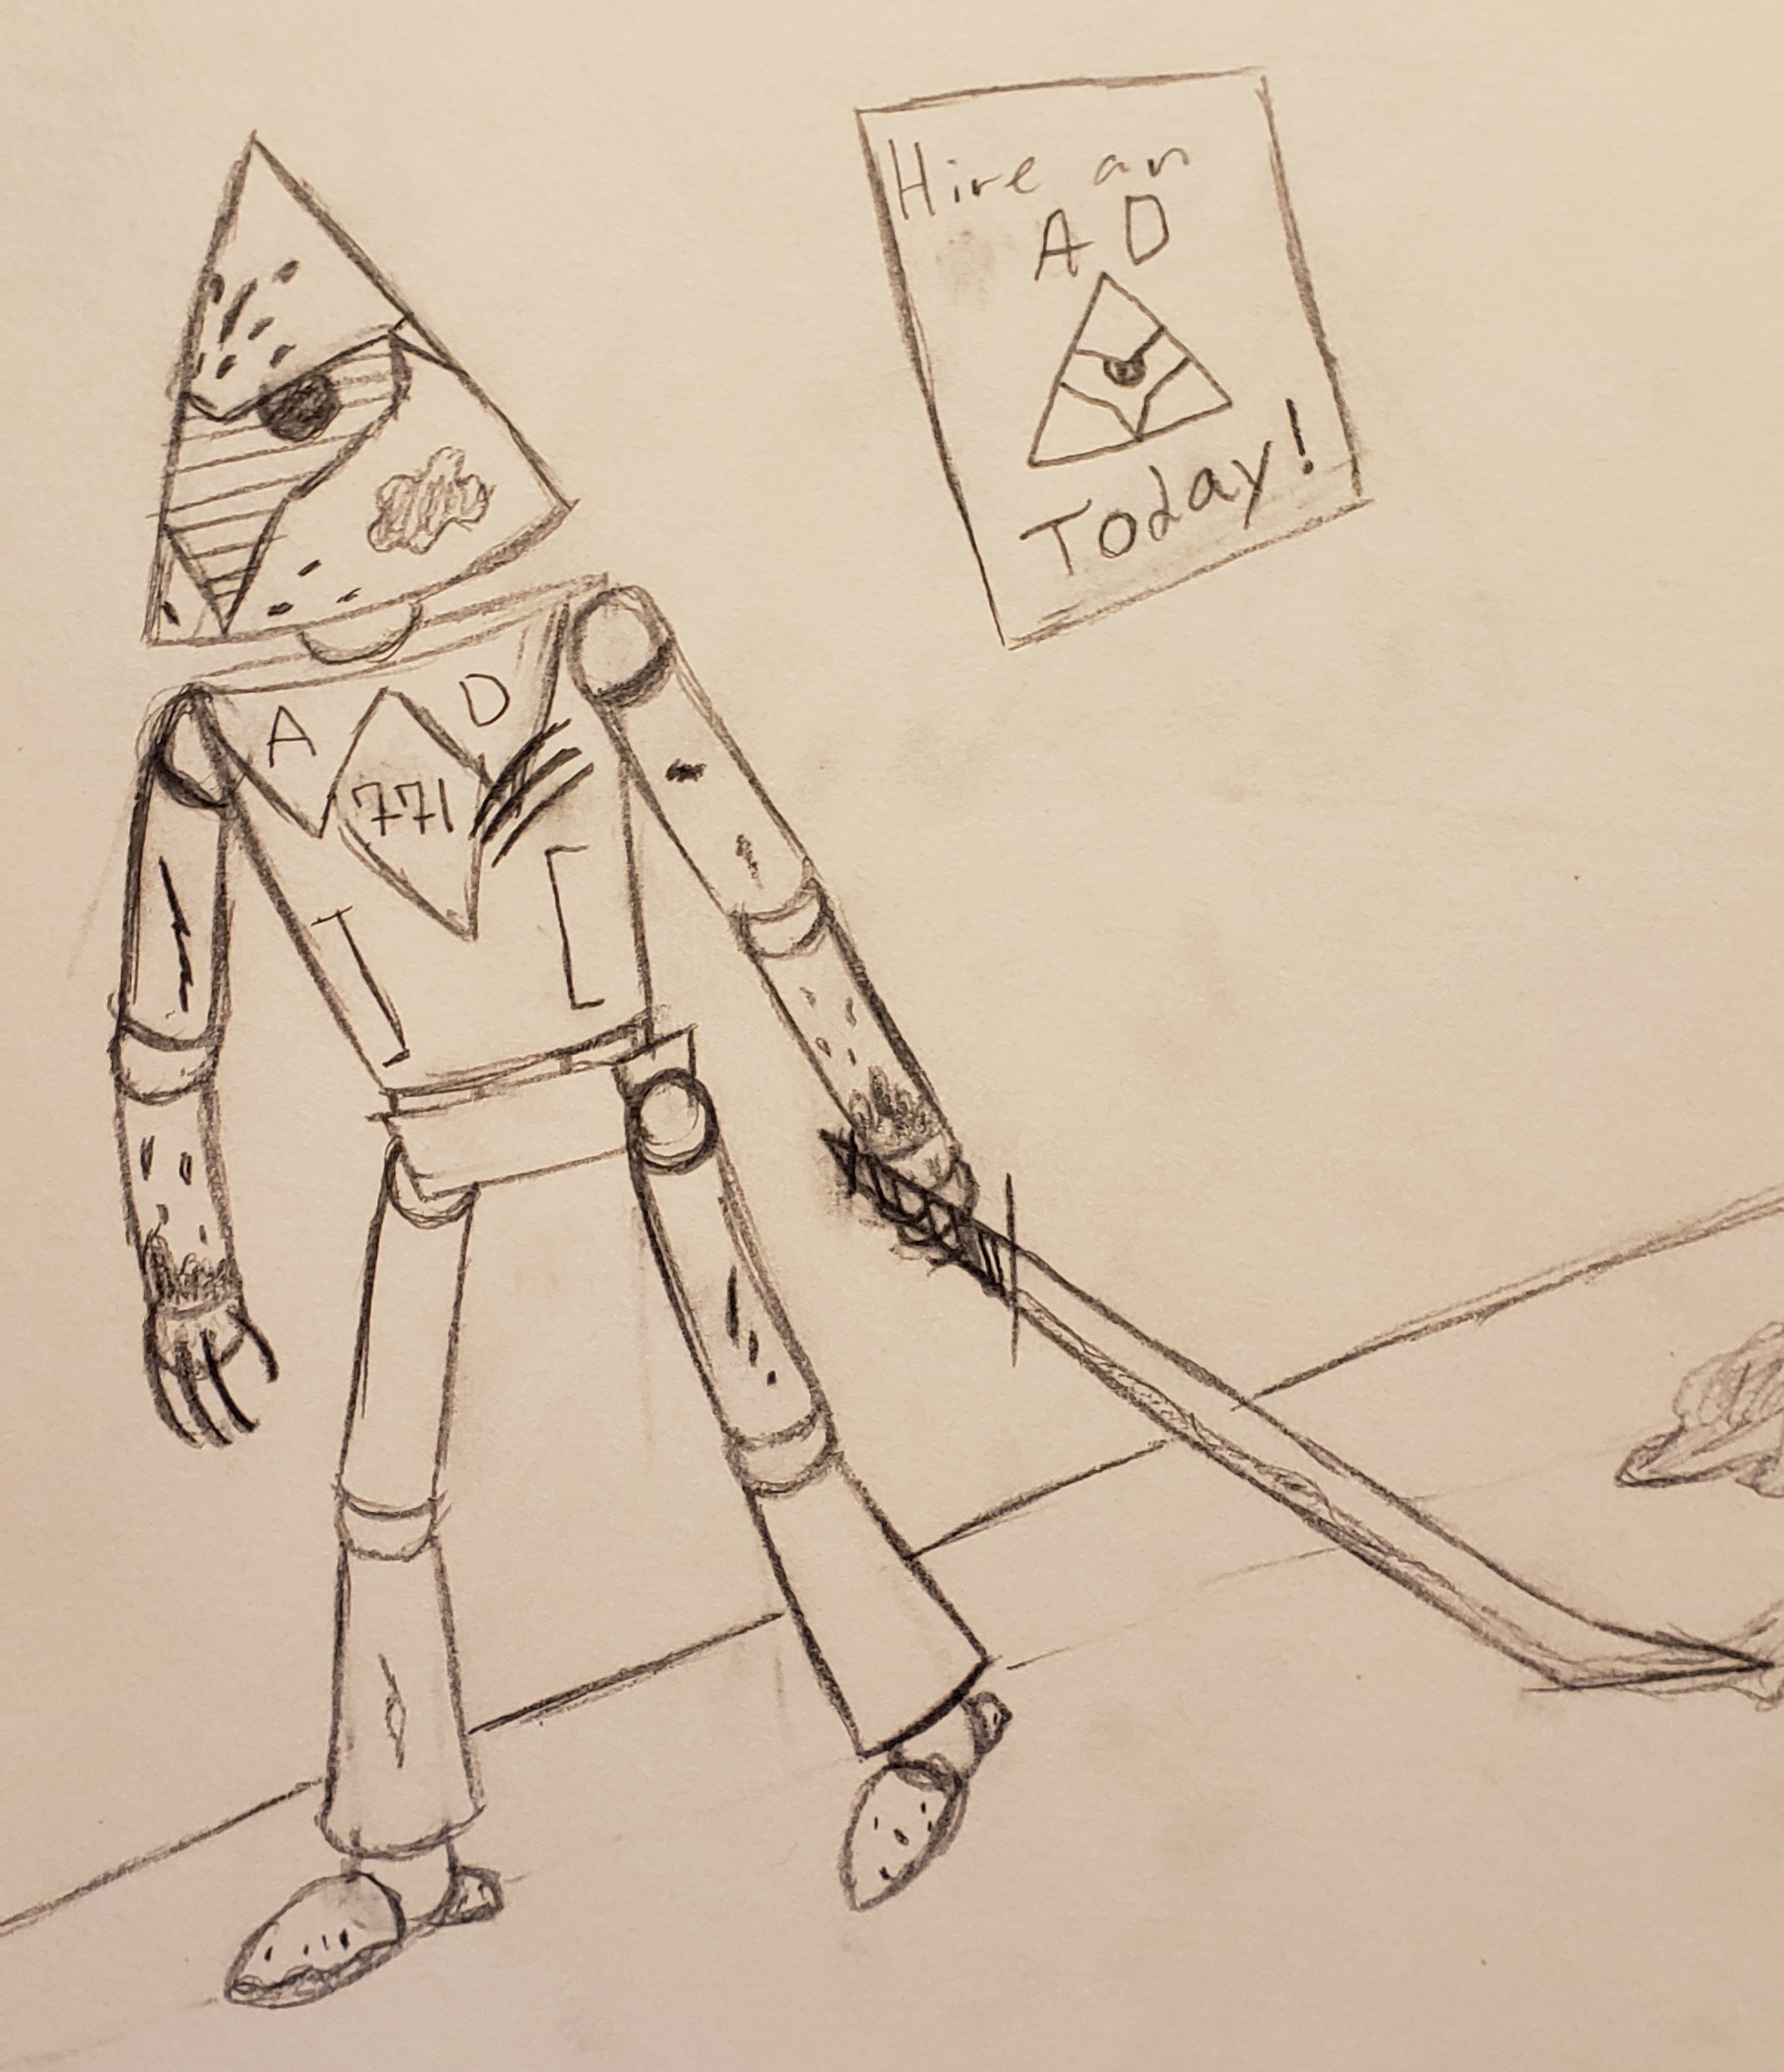 Hire an
A D
Today!
A D
771